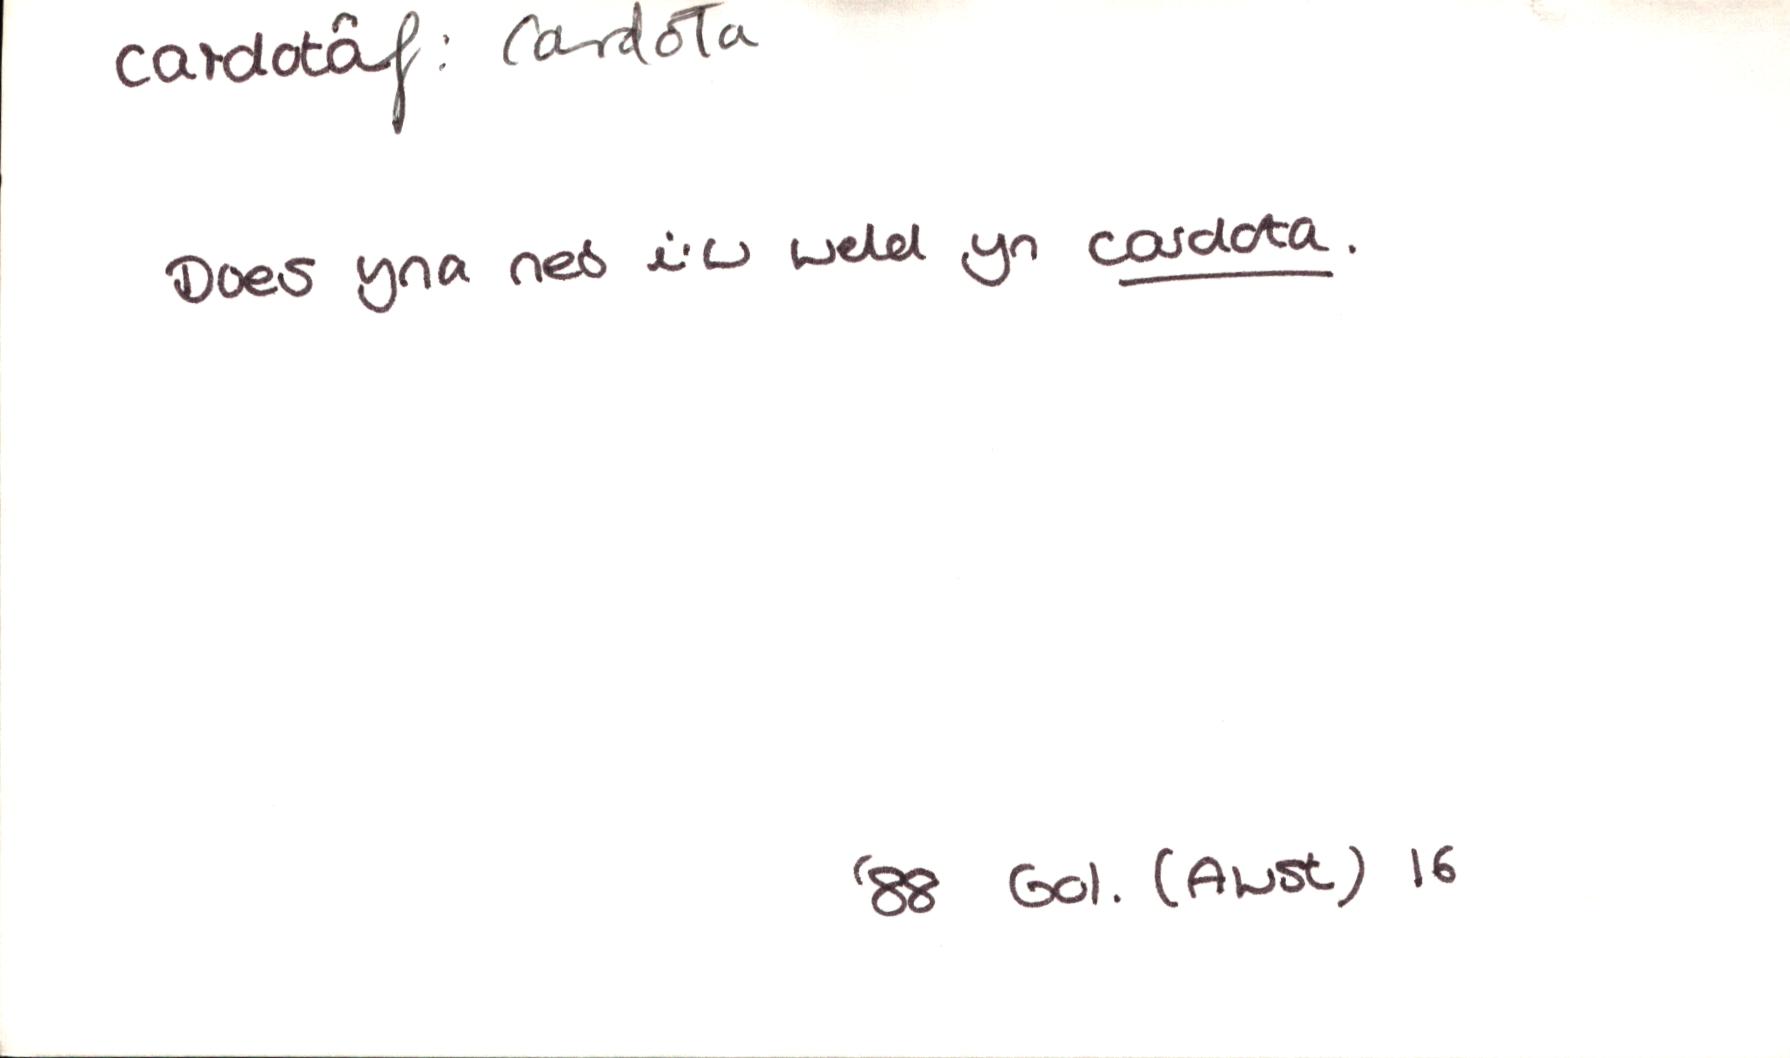 cardotâf: Cardota
Does yna neb i'w weld yn cardota.
'88 Gol. (Awst) 16